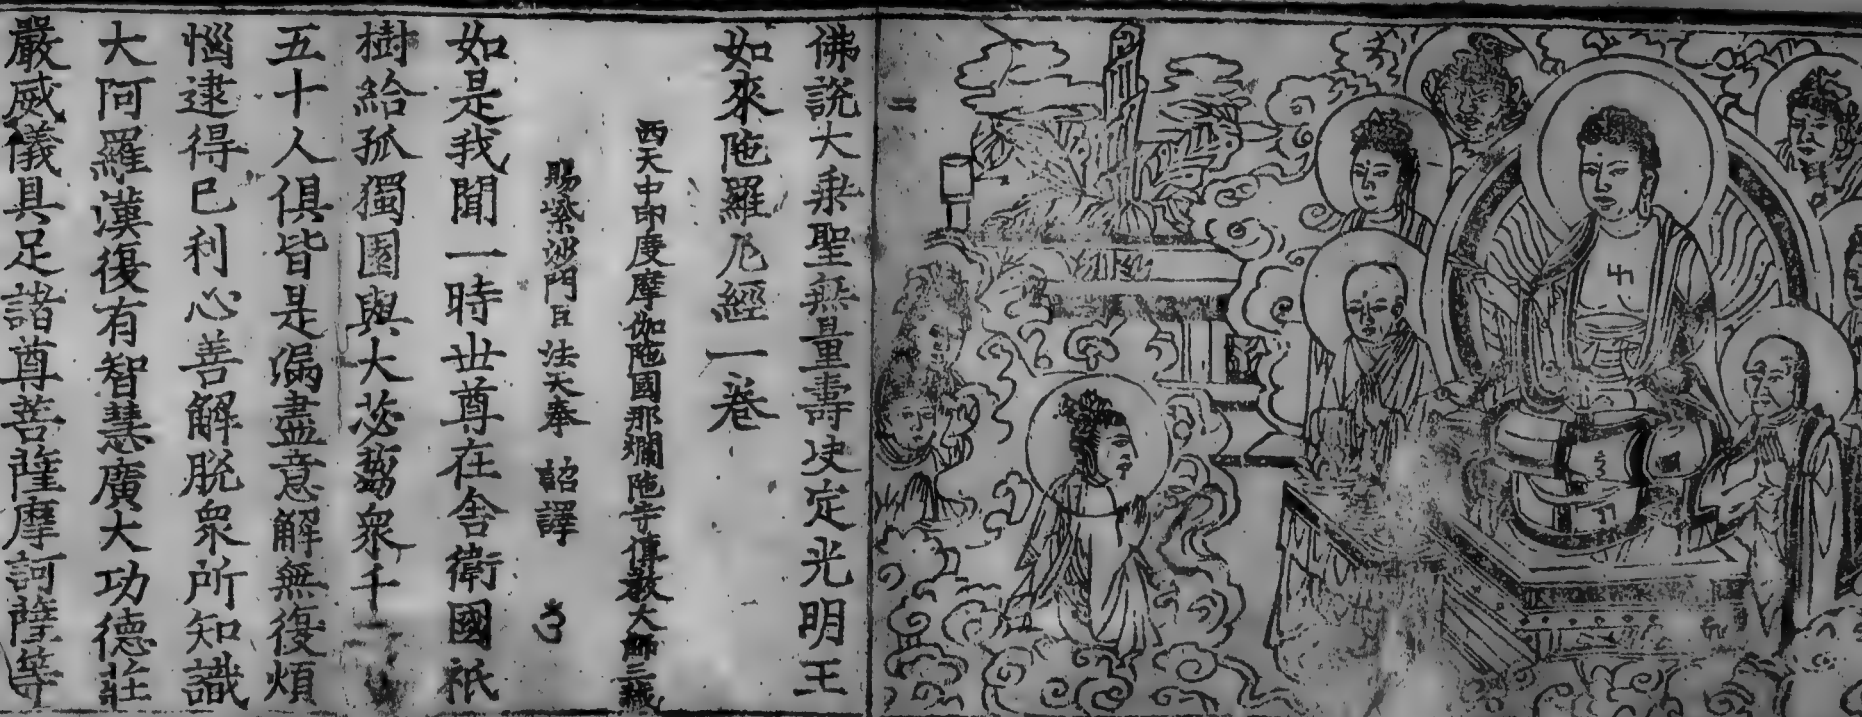 佛說大乘聖無量壽決定光明王
如來陁羅尼經一卷
西天中印度摩伽陁國那爛陁寺傳教大師三藏
賜紫沙門臣法天奉 詔譯
如是我聞一時世尊在舍衛國祇
樹給孤獨園與大苾芻衆千二百
五十人俱皆是漏盡意解無復煩
惱逮得已利心善解脫衆所知識
大阿羅漢復有智慧廣大功德莊
嚴威儀具足諸尊菩薩摩訶薩等